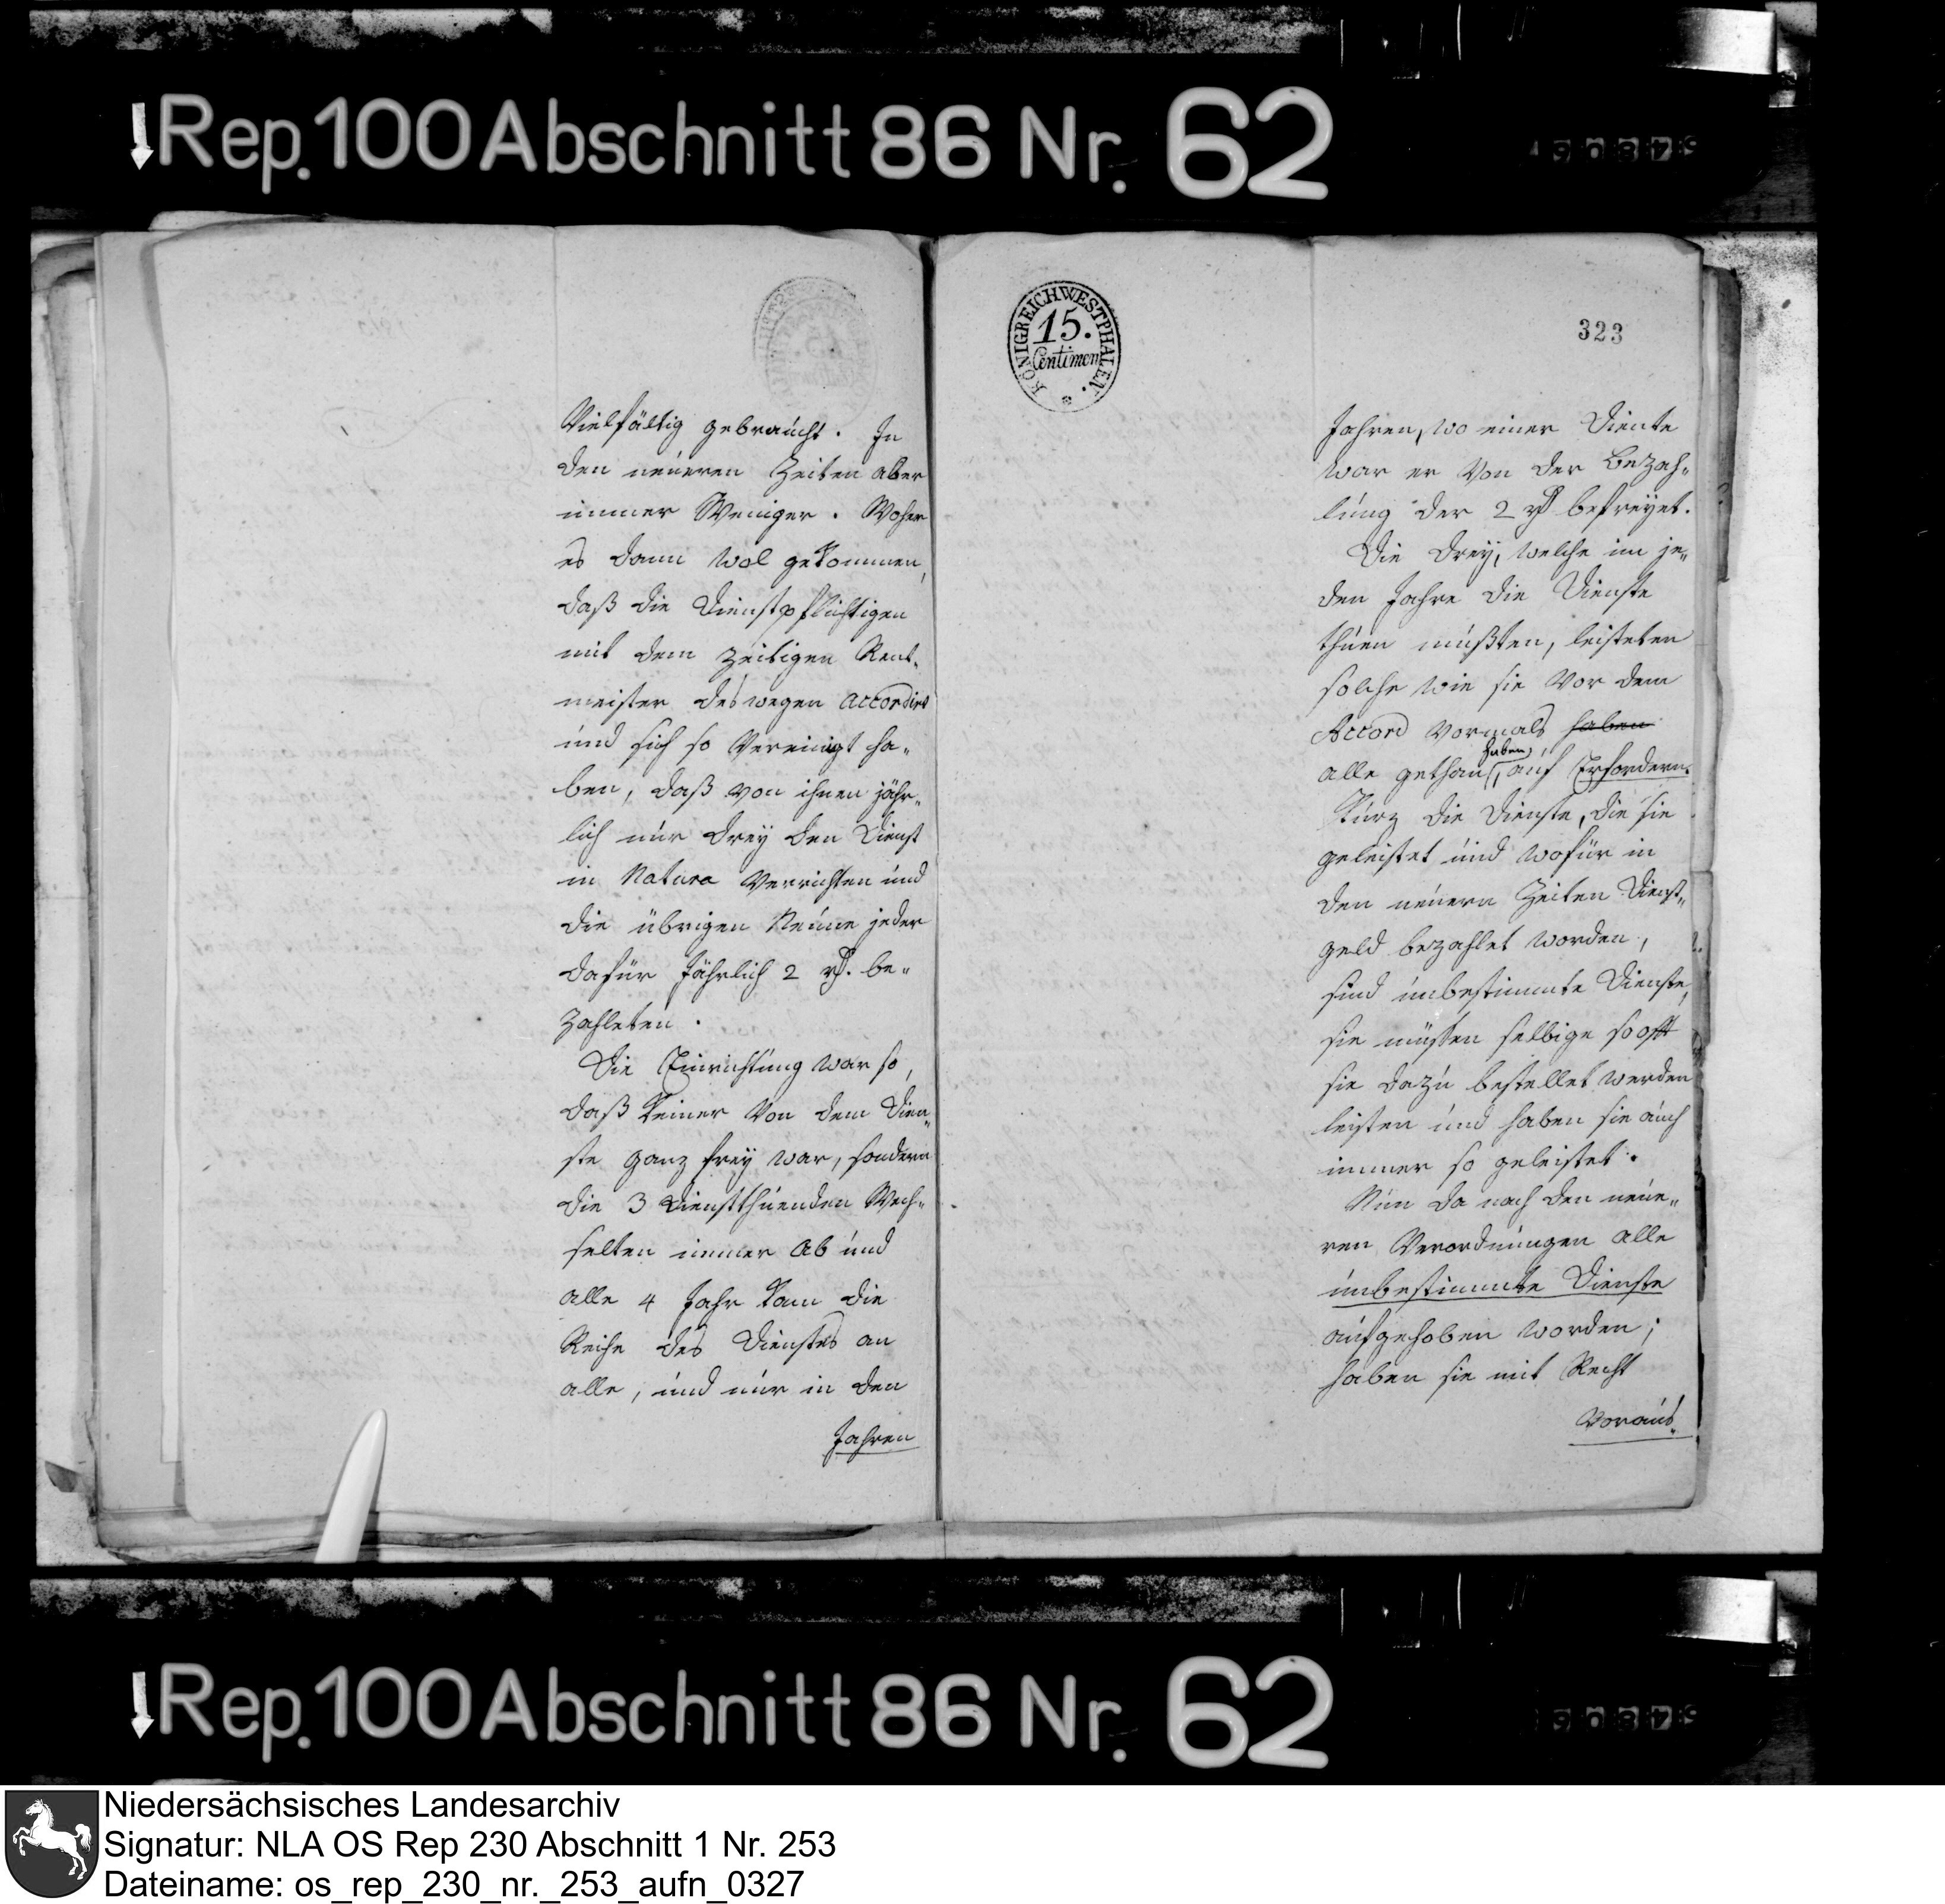 Rep. 100 Abschnitt 86 Nr. 62
Vielfältig gebraucht. In
den neueren Zeiten aber
immer Weniger. Woher
es dann wol gekommen,
daß die Dienstpflichtigen
mit dem zeitigen Rent-
meister deswegen accordirt
und sich so Vereinigt ha-
ben, daß von ihnen jähr-
lich nur drey den Dienst
in Natura Verrichten und
die übrigen Neune jeder
dafür Jährlich 2 rt. be-
zahleten.
Die Einrichtung war so,
daß keiner Von dem Dien-
ste ganz frey war, sondern
die 3 Dienstthuenden Wech-
selten immer ab und
alle 4 Jahr kam die
Reihe des Dienstes an
alle, und nur in den
Jahren
KÖNIGREICH WESTPHALEN.
15.
Centimen
323
Jahren, wo einer Diente
war er Von der Bezah-
lung der 2 rt befreyet.
Die Drey, welche im je-
den Jahre die Dienste
thuen mußten, leisteten
solche wie sie Vor dem
Accord Vormals haben
alle gethan haben, auf Erfordern.
Kurz die Dienste, die sie
geleistet und wofür in
den neuern Zeiten Dienst-
geld bezahlet worden,
sind unbestimmte Dienste,
sie müßen selbige so oft
sie dazu bestellet werden
leisten und haben sie auch
immer so geleistet.
Nun da nach den neue-
ren Verordnungen alle
unbestimmte Dienste
aufgehoben worden;
haben sie mit Recht
Voraus-
Rep. 100 Abschnitt 86 Nr. 62
Niedersächsisches Landesarchiv
Signatur: NLA OS Rep 230 Abschnitt 1 Nr. 253
Dateiname: os_rep_230_nr._253_aufn_0327